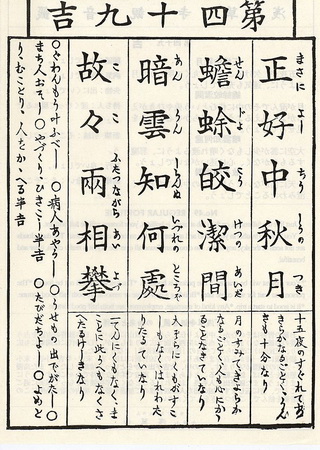 第四十九吉
正好中秋月
まさに よし ちう しうの つき
十五夜のすぐれてあ
きらかなるごとく、うん
きも十分なり
蟾蜍皎潔間
せん じよ こう けつの あいだ
月のすみてきよらか
なるごとく、人も心にかゝ
ることなきていなり
暗雲知何處
あん うん しんぬ いづれの ところぞ
大ぞらにくもがすこ
しもなく、はれわた
りたるていなり
故々兩相攀
こ こ ふたつながら あい よづ
一てんにくもなく、ま
ことに此うへもなくさ
へたるけしきなり
○ぐわんもう叶ふべし ○病人あやうし ○うせもの出でがたし ○
まち人おそし ○やづくり、ひきこし半吉 ○たびだちよし ○よめと
り、むことり、人をかゝへる半吉